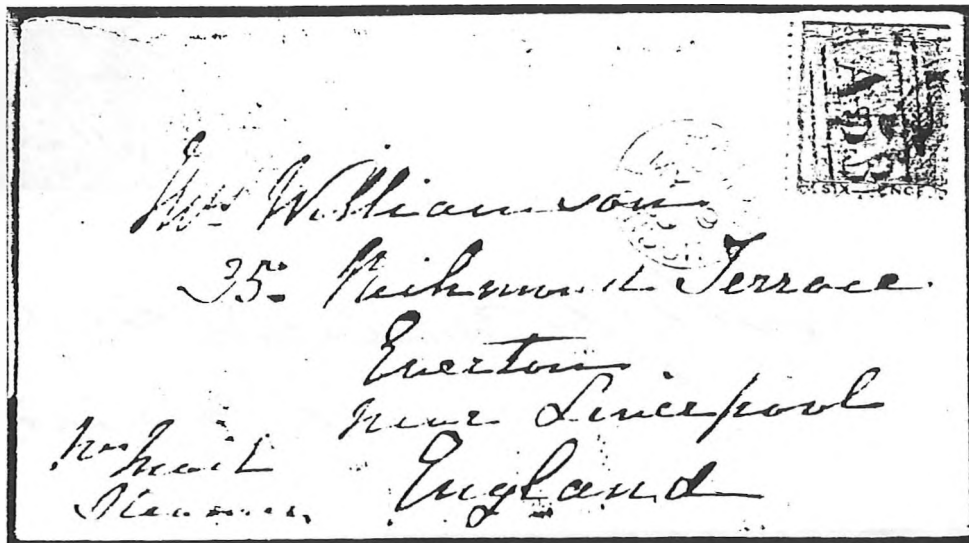 SIX PENCE
Mrs Williamson
35 Richmond Terrace
Everton
near Liverpool
England
per Mail
Steamer